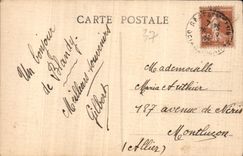 CARTE POSTALE
37
Un bonjour
de Blanzy
Meilleurs souvenirs
Gilbert
Mademoiselle
Maria Authier
187 avenue de Néris
Montluçon
(Allier)